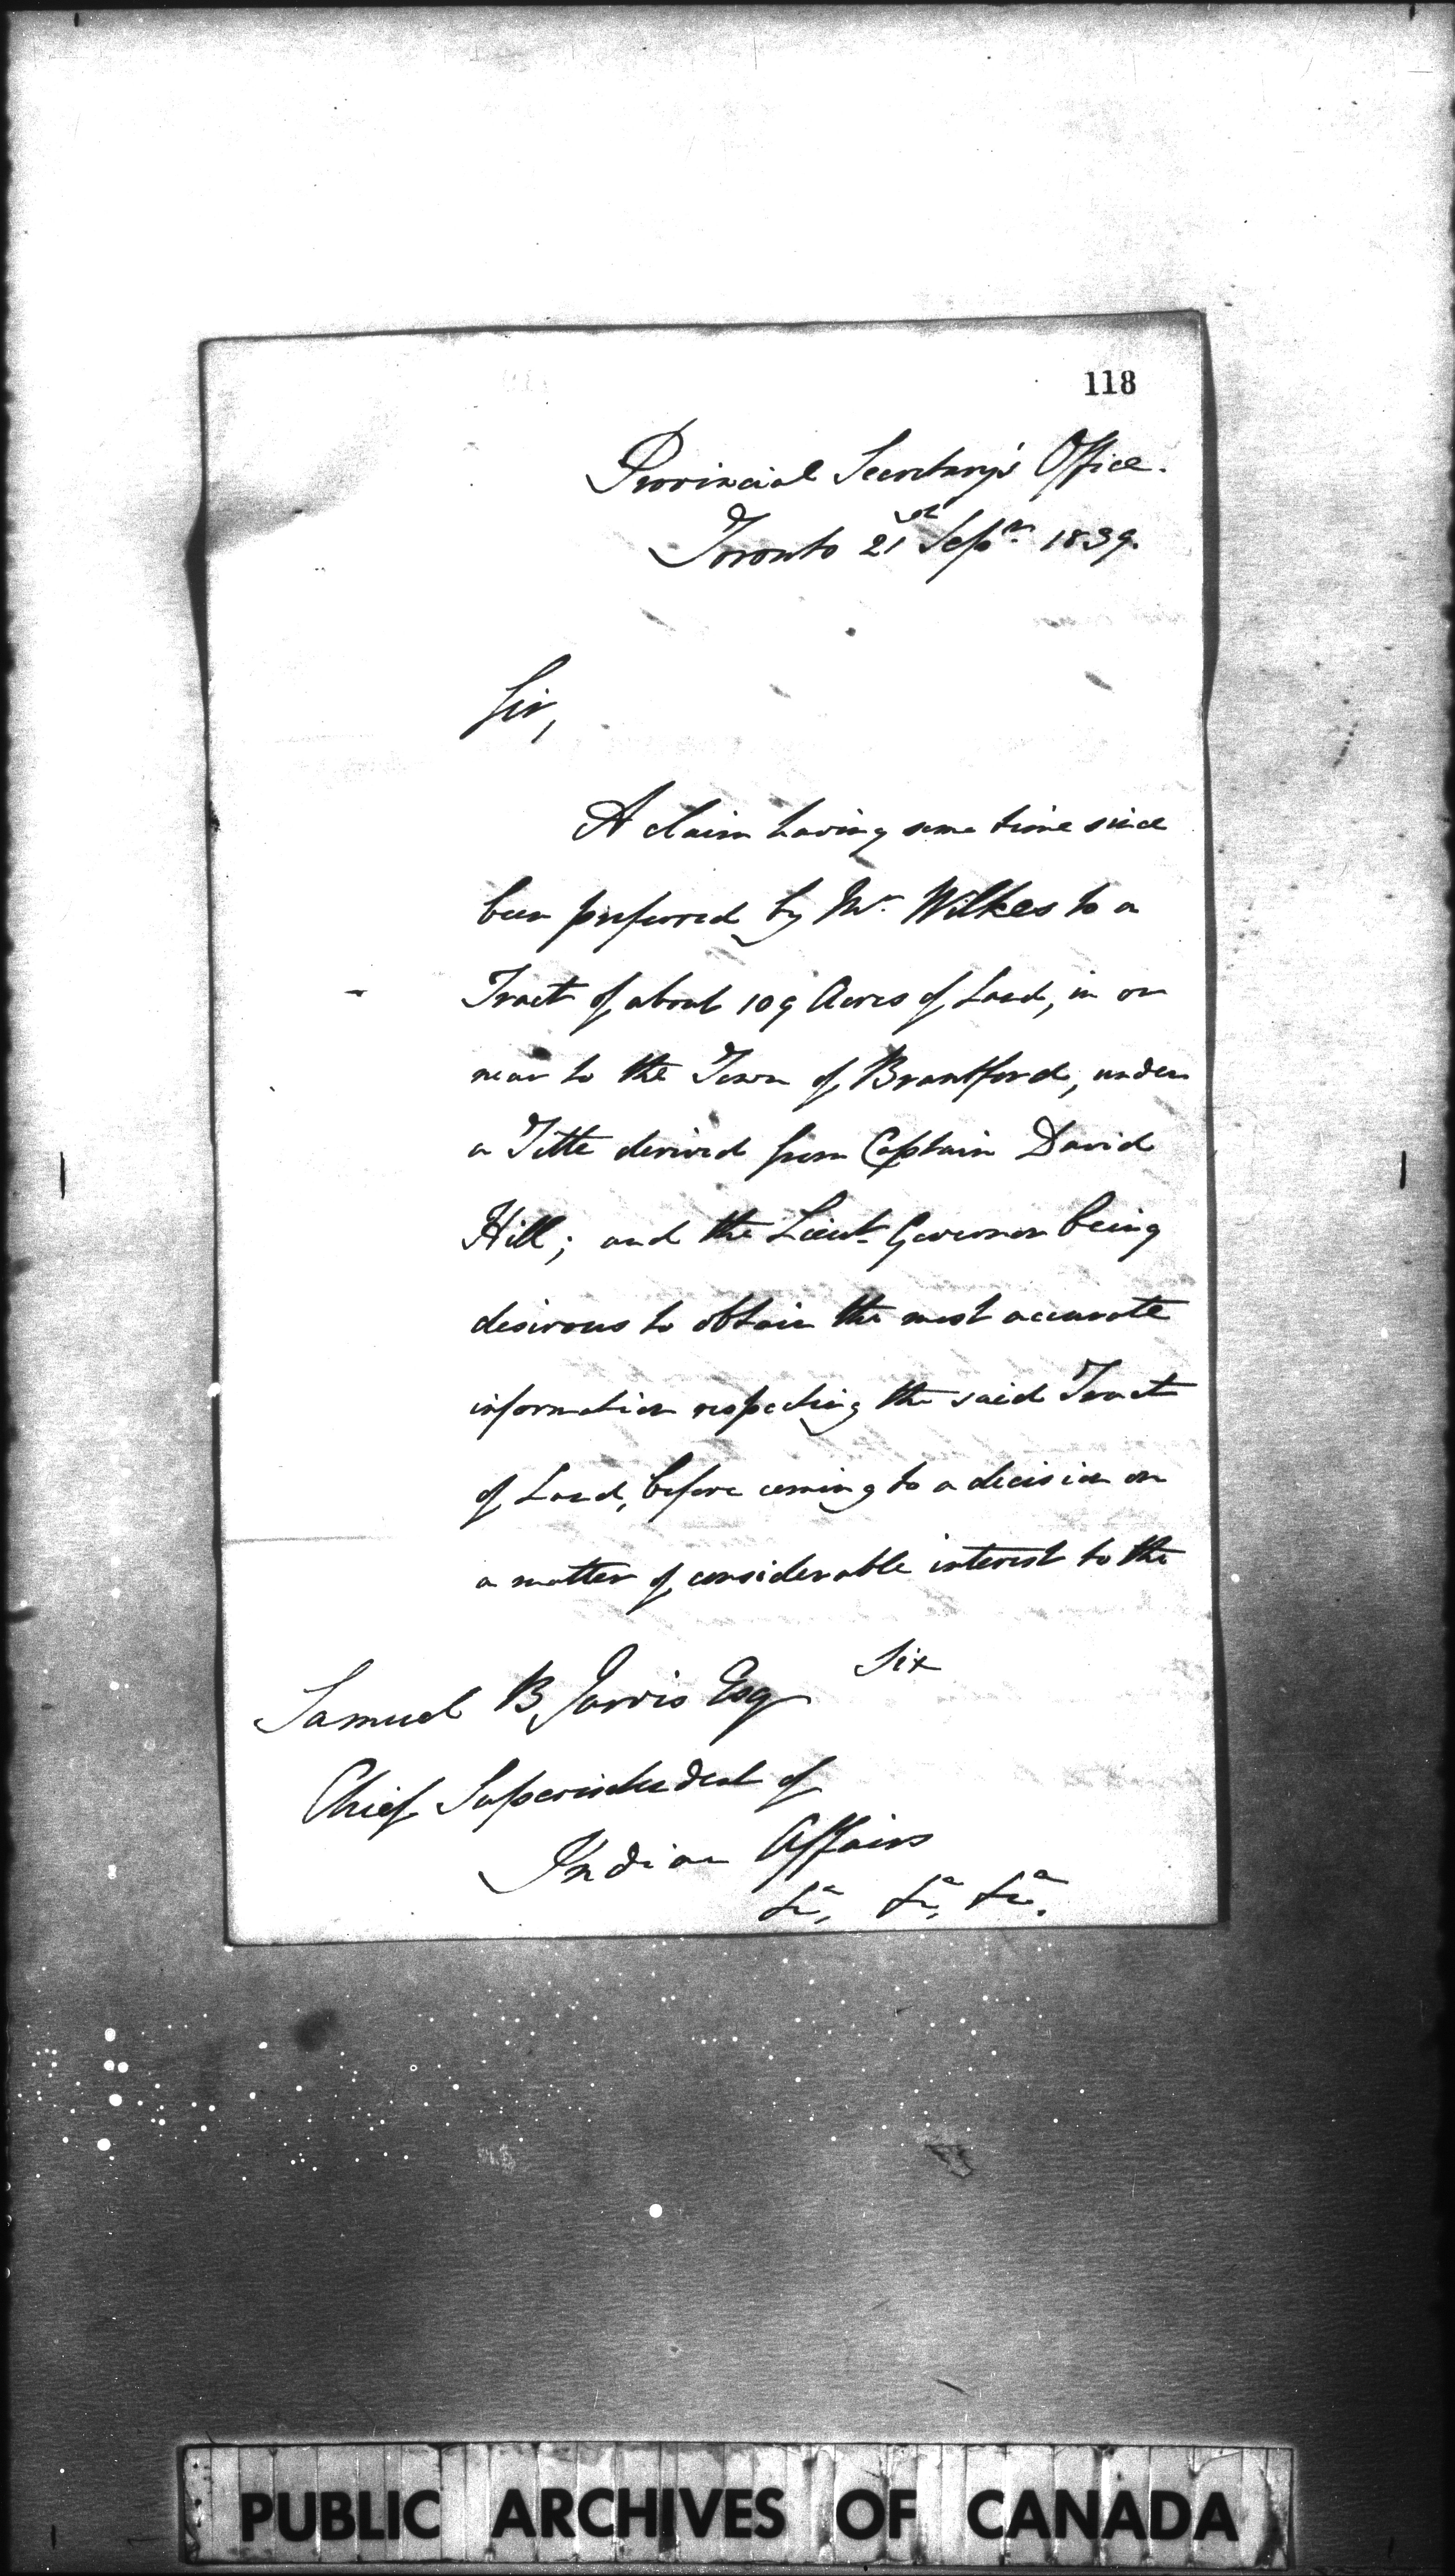 118
Provincial Secretary's Office.
Toronto 21st Sepr. 1839.
Sir,
A claim having some time since
been preferred by Mr. Wilkes to a
Tract of about 109 Acres of Land, in or
near to the Town of Brantford, under
a Title derived from Captain David
Hill; and the Lieut. Governor being
desirous to obtain the most accurate
information respecting the said Tract
of Land, before coming to a decision on
a matter of considerable interest to the
Six
Samuel B Jarvis Esqr
Chief Superintendent of
Indian Affairs
&a, &a, &a.
PUBLIC ARCHIVES OF CANADA